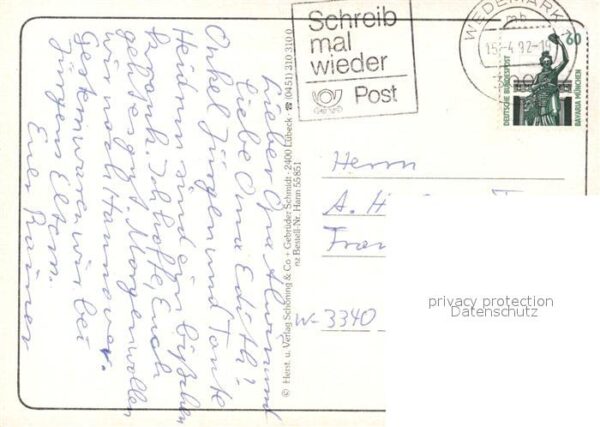 Lieber Opa Alwin und
liebe Oma Edith!
Onkel Jürgen und Tante
Heidrun sind ein bißchen
krank. Ich hoffe, Euch
geht es gut. Morgen wollen
wir nach Hannover.
Gestern waren wir bei
Jürgens Eltern.
Euer Rainer
© Herst. u. Verlag Schöning & Co + Gebrüder Schmidt · 2400 Lübeck · ☎ (0451) 310 310 0
nz Bestell-Nr. Hann 55851
Schreib
mal
wieder
Post
WEDEMARK
mb
15.-4.92-14
60
DEUTSCHE BUNDESPOST
BAVARIA MÜNCHEN
Herrn
A. H
Fran
W-3340
privacy protection
Datenschutz